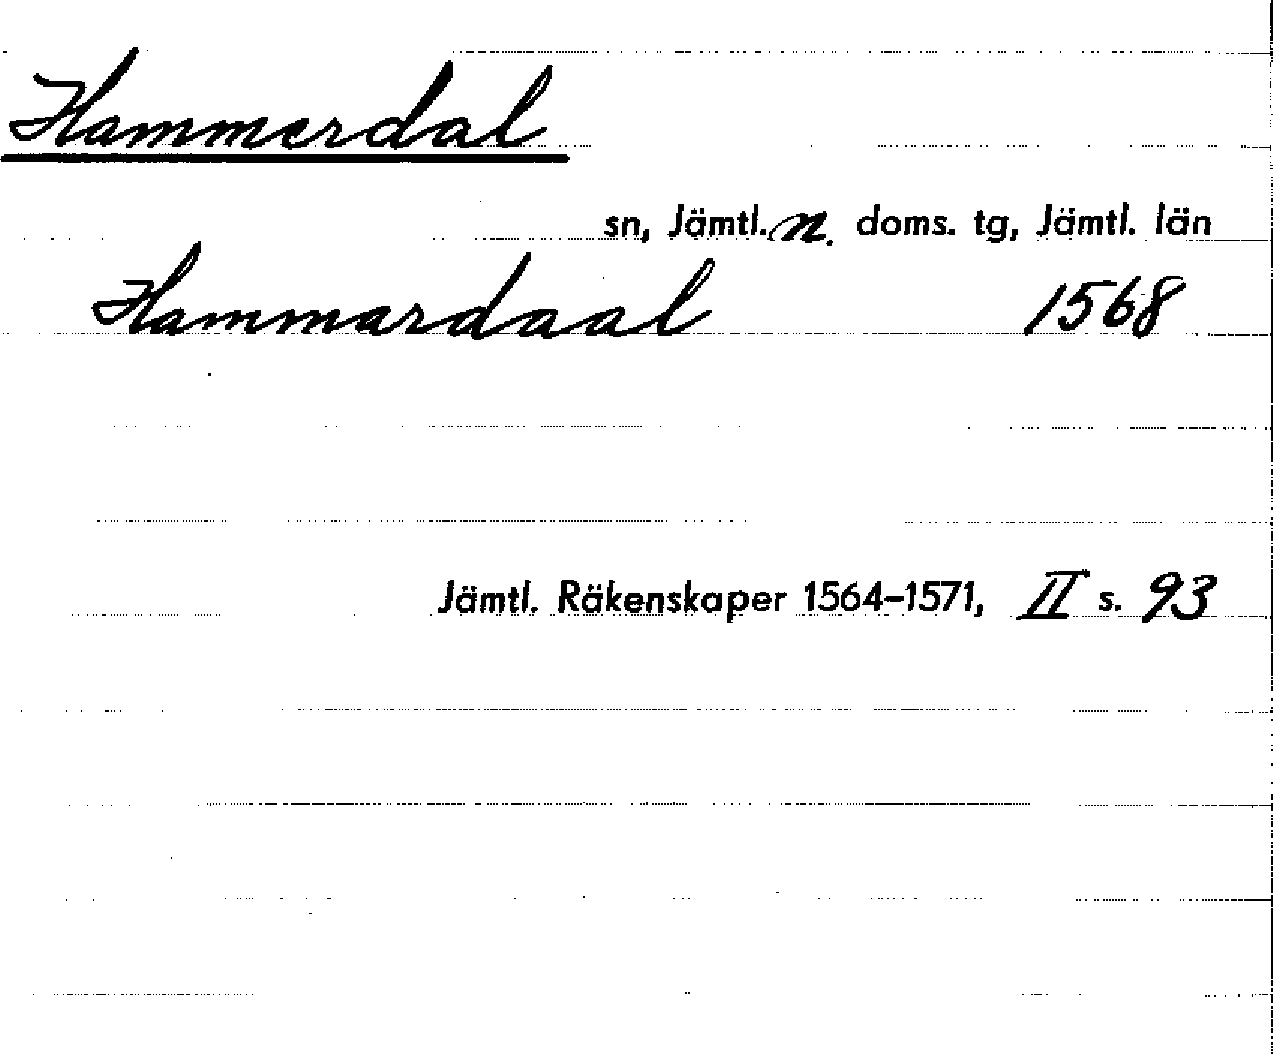 Hammerdal
sn, Jämtl. n. doms. tg, Jämtl. län
Hammardaal 1568
Jämtl. Räkenskaper 1564-1571, II s. 93